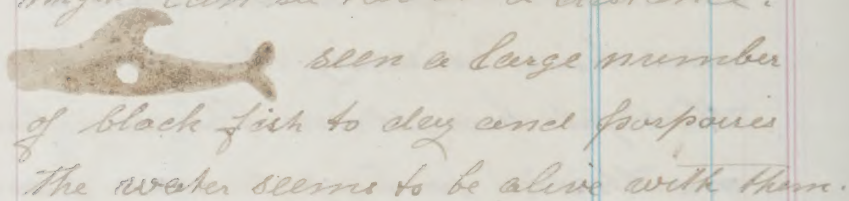 seen a large number
of black fish to day and porpoises
The water seems to be alive with them.